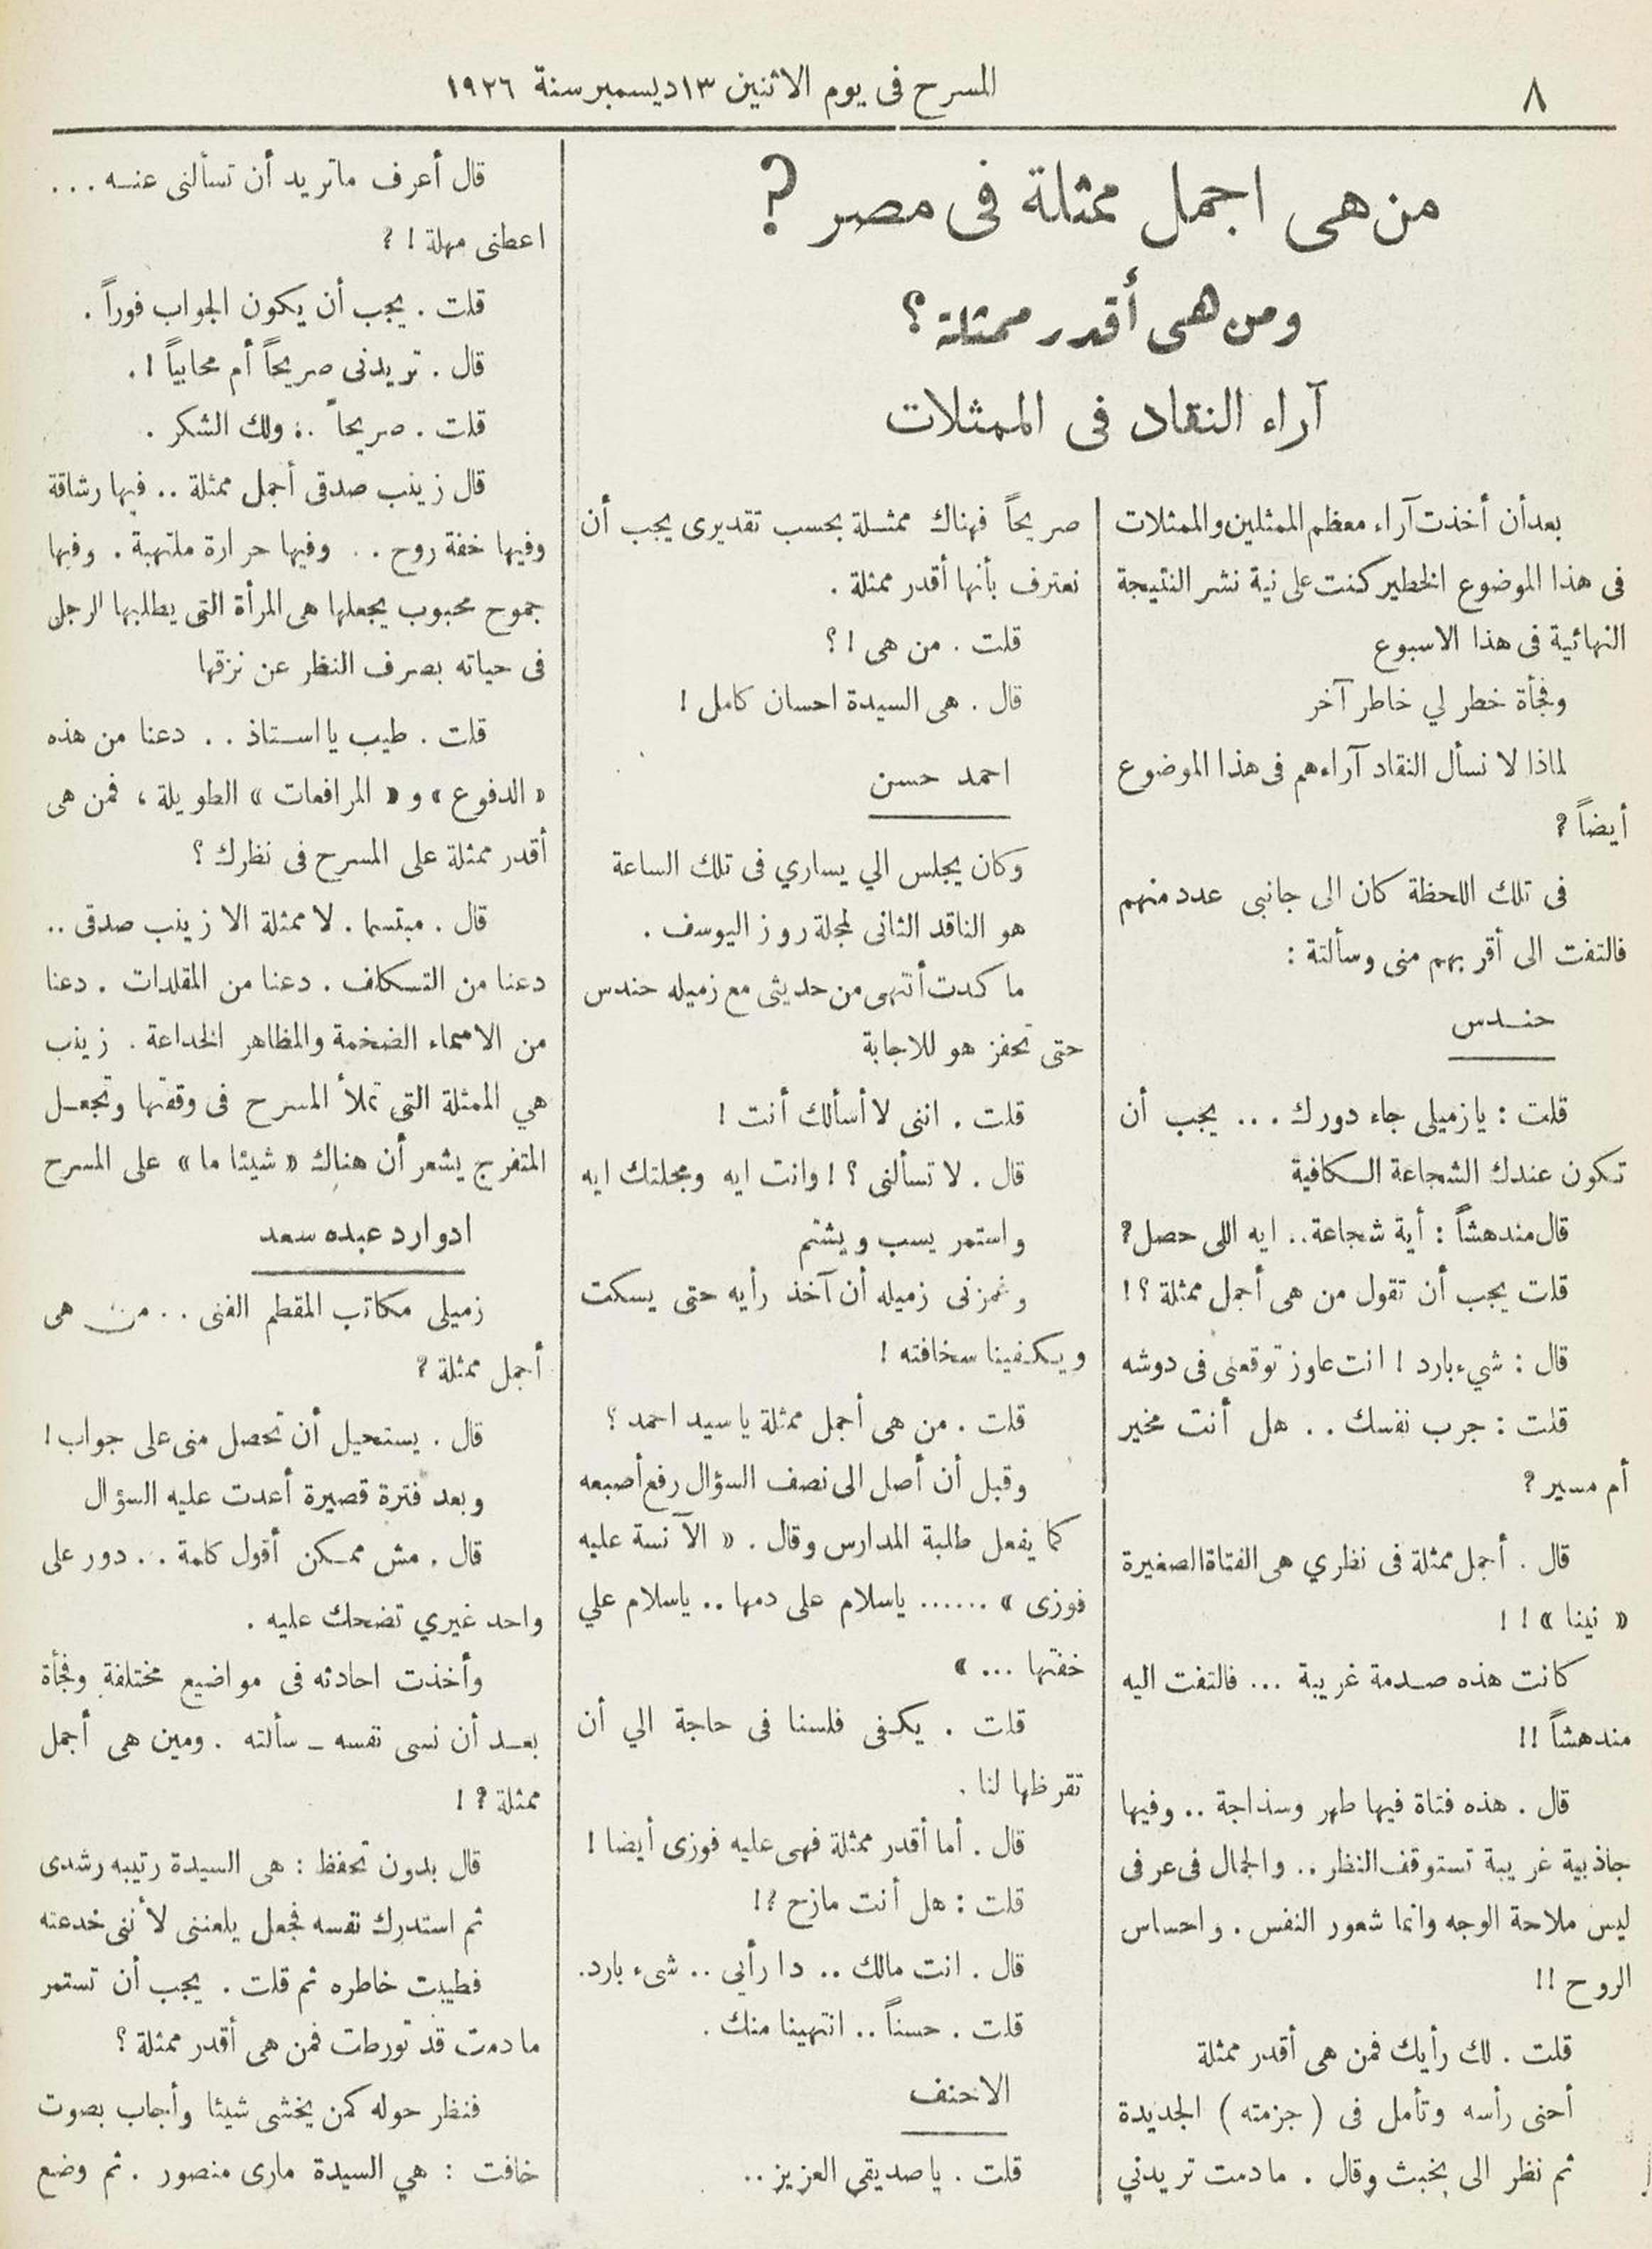 ٨
المسرح فى يوم الاثنين ١٣ ديسمبر سنة ١٩٢٦
من هى اجمل ممثلة فى مصر ؟
ومن هى أقدر ممثلة ؟
آراء النقاد فى الممثلات
بعد أن أخذت آراء معظم الممثلين والممثلات
فى هذا الموضوع الخطير كنت على نية نشر النتيجة
النهائية فى هذا الاسبوع
وفجأة خطر لي خاطر آخر
لماذا لا نسأل النقاد آراءهم فى هذا الموضوع
أيضاً ؟
فى تلك اللحظة كان الى جانبى عدد منهم
فالتفت الى أقربهم منى وسألتة :
حندس
قلت : يازميلى جاء دورك ... يجب أن
تكون عندك الشجاعة الكافية
قال مندهشاً : أية شجاعة .. ايه اللى حصل ؟
قلت يجب أن تقول من هى أجمل ممثلة ؟ !
قال : شيء بارد ! انت عاوز توقعنى فى دوشه
قلت : جرب نفسك .. هل أنت مخير
أم مسير ؟
قال . أجمل ممثلة فى نظري هى الفتاة الصغيرة
« نينا » ! !
كانت هذه صدمة غريبة ... فالتفت اليه
مندهشاً !!
قال . هذه فتاة فيها طهر وسذاجة .. وفيها
جاذبية غريبة تستوقف النظر .. والجمال فى عرفى
ليس ملاحة الوجه وانما شعور النفس . واحساس
الروح !!
قلت . لك رأيك فمن هى أقدر ممثلة
أحنى رأسه وتأمل فى ( جزمته ) الجديدة
ثم نظر الى بخبث وقال . مادمت تريدني
صريحاً فهناك ممثلة بحسب تقديرى يجب أن
نعترف بأنها أقدر ممثلة .
قلت . من هى ! ؟
قال . هى السيدة احسان كامل !
احمد حسن
وكان يجلس الي يساري فى تلك الساعة
هو الناقد الثانى لمجلة روز اليوسف .
ما كدت أنتهى من حديثى مع زميله حندس
حتى تحفز هو للاجابة
قلت . اننى لا أسألك أنت !
قال . لا تسألنى ؟ ! وانت ايه ومجلتك ايه
واستمر يسب ويشتم
وغمزنى زميله أن آخذ رأيه حتى يسكت
ويكفينا سخافته !
قلت . من هى أجمل ممثلة ياسيد احمد ؟
وقبل أن أصل الى نصف السؤال رفع أصبعه
كما يفعل طلبة المدارس وقال . « الآنسة عليه
فوزى » ...... ياسلام على دمها .. ياسلام علي
خفتها ... »
قلت . يكفى فلسنا فى حاجة الي أن
تقرظها لنا .
قال . أما أقدر ممثلة فهى عليه فوزى أيضا !
قلت : هل أنت مازح ؟!
قال . انت مالك .. دا رأيى .. شىء بارد.
قلت . حسناً .. انتهينا منك .
الاحنف
قلت . ياصديقى العزيز ..
قال أعرف ماتريد أن تسألنى عنه ...
اعطنى مهلة ! ؟
قلت . يجب أن يكون الجواب فوراً .
قال . تريدنى صريحاً أم محابياً ! .
قلت . صريحاً .. ولك الشكر .
قال زينب صدقى أجمل ممثلة .. فيها رشاقة
وفيها خفة روح .. وفيها حرارة ملتهبة . وفيها
جموح محبوب يجعلها هى المرأة التى يطلبها الرجل
فى حياته بصرف النظر عن نزقها
قلت . طيب يا استاذ .. دعنا من هذه
« الدفوع » و « المرافعات » الطويلة ، فمن هى
أقدر ممثلة على المسرح فى نظرك ؟
قال . مبتسما . لا ممثلة الا زينب صدقى ..
دعنا من التكلف . دعنا من المقلدات . دعنا
من الاسماء الضخمة والمظاهر الخداعة . زينب
هي الممثلة التى تملأ المسرح فى وقفتها وتجعل
المتفرج يشعر أن هناك « شيئا ما » على المسرح
ادوارد عبده سعد
زميلى مكاتب المقطم الفنى .. من هى
أجمل ممثلة ؟
قال . يستحيل أن تحصل منى على جواب !
وبعد فترة قصيرة أعدت عليه السؤال
قال . مش ممكن أقول كلمة .. دور على
واحد غيري تضحك عليه .
وأخذت احادثه فى مواضيع مختلفة وفجأة
بعد أن نسى نفسه ـ سألته . ومين هى أجمل
ممثلة ؟ !
قال بدون تحفظ : هى السيدة رتيبه رشدى
ثم استدرك نفسه فجعل يلعننى لأننى خدعته
فطيبت خاطره ثم قلت . يجب أن تستمر
مادمت قد تورطت فمن هى أقدر ممثلة ؟
فنظر حوله كمن يخشى شيئا وأجاب بصوت
خافت : هي السيدة مارى منصور . ثم وضع